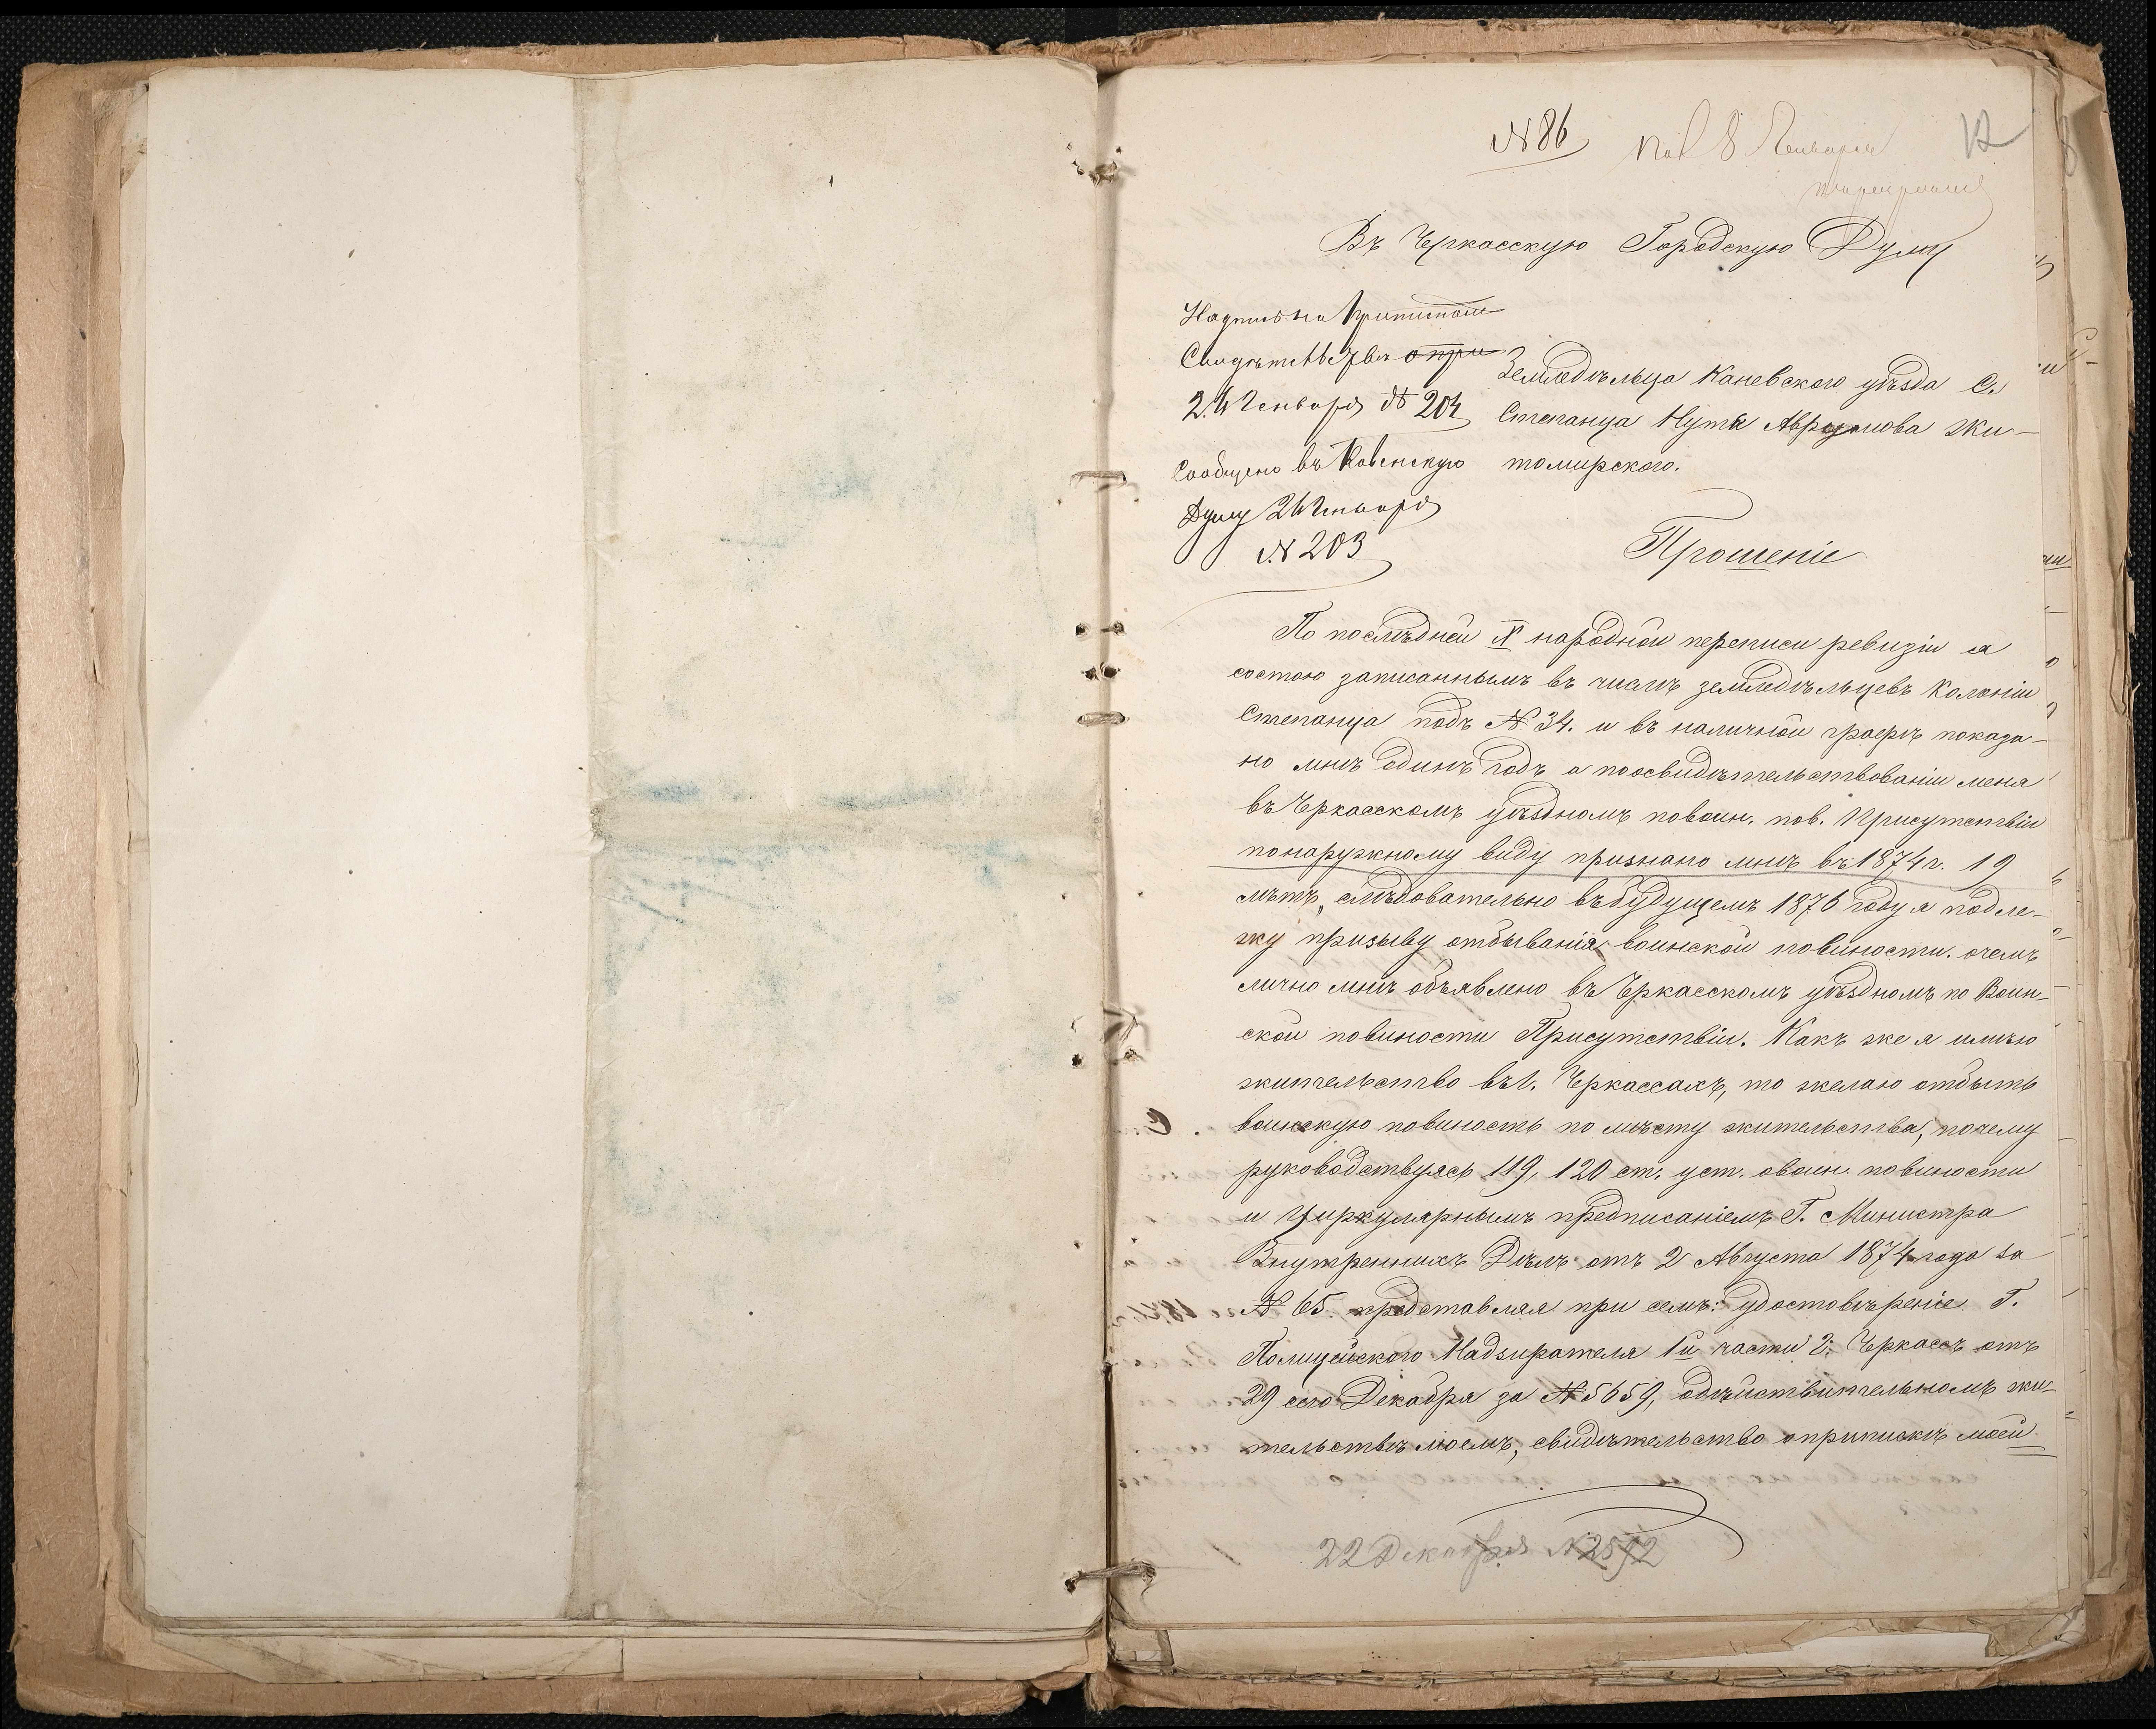 № 86
Пол 8 Января
12
Въ Черкасскую Городскую Думу
Надпись на
Свидѣтельствѣ о при
24 Января № 204
Сообщено въ Каневскую
Думу 24 Января
№ 203
Земледѣльца Каневского уѣзда С.
Степанца Нута Аврумова Жи-
томирского.
Прошеніе
По послѣдней X народной переписи ревизіи я
состою записаннымъ въ числѣ земледѣльцевъ Колоніи
Степанца подъ № 34. и въ наличной графѣ показа-
но мнѣ одинъ годъ а поосвидѣтельствованіи меня
въ Черкасскомъ уѣздномъ повоин. пов. Присутствіи
понаружному виду признано мнѣ въ 1874 г. 19
лѣтъ, слѣдовательно въ будущемъ 1876 году я подле-
жу призыву отбыванія воинской повиности. очемъ
лично мнѣ объявлено въ Черкасскомъ уѣздномъ по Воин-
ской повиности Присутствіи. Какъ же я имѣю
жительство въ г. Черкассахъ, то желаю отбыть
воинскую повиность по мѣсту жительства, почему
руководствуясь 119, 120 ст. уст. овоин. повиности
и Циркулярнымъ предписаніемъ Г. Министра
Внутреннихъ Дѣлъ отъ 2 Августа 1874 года за
№ 65. представляя при семъ: удостовѣреніе Г.
Полицейского Надзирателя 1й части г. Черкассъ отъ
29 сего Декабря за № 5659, одѣйствительномъ жи-
тельствѣ моемъ, свидѣтельство оприпискѣ моей
22 Декабря № 2592